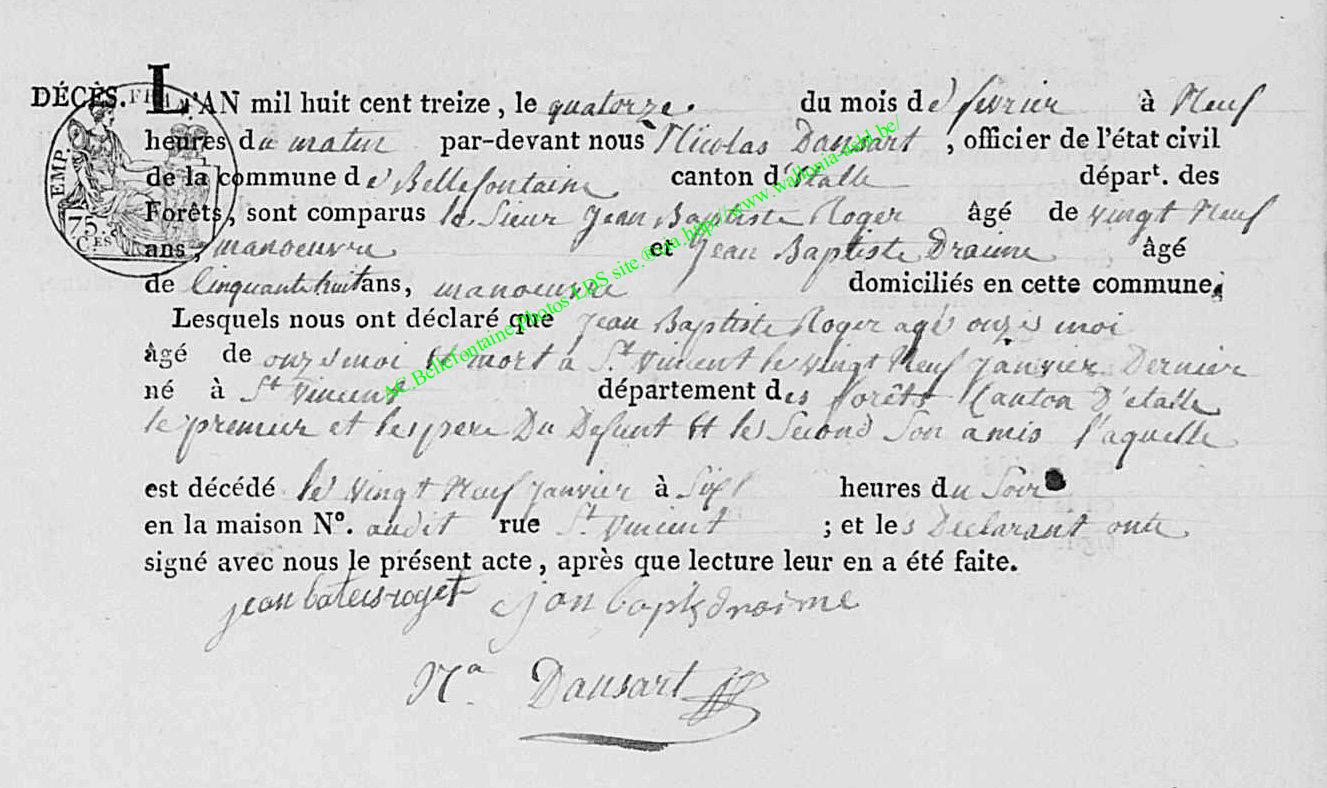 DÉCÈS. L'AN mil huit cent treize, le quatorze du mois de fevrier à Neuf
heures du matin par-devant nous Nicolas Dansart, officier de l'état civil
de la commune de Bellefontaine canton d'Etalle départ. des
Forêts, sont comparus le Sieur Jean Baptiste Roger âgé de vingt Neuf
ans, manoeuvre et Jean Baptiste Draime âgé
de Cinquante huit ans, manoeuvre domiciliés en cette commune,
Lesquels nous ont déclaré que Jean Baptiste Roger agé onze moi
âgé de onze moi et mort a St. Vincent le vingt Neuf janvier Dernier
né à St Vincent département des forêts Canton D'etalle
le premier et les pere Du Defunt et les Second Son amis l'aquelle
est décédé le vingt Neuf janvier à heures du Soir
en la maison N°. audit rue St. Vincent ; et les Declarant onte
signé avec nous le présent acte, après que lecture leur en a été faite.
jean roget jan draime
Na. Dansart
EMP. FR
75.
CES
AC.Bellefontaine.Photos LDS site. http://www.wallonia-asbl.be/